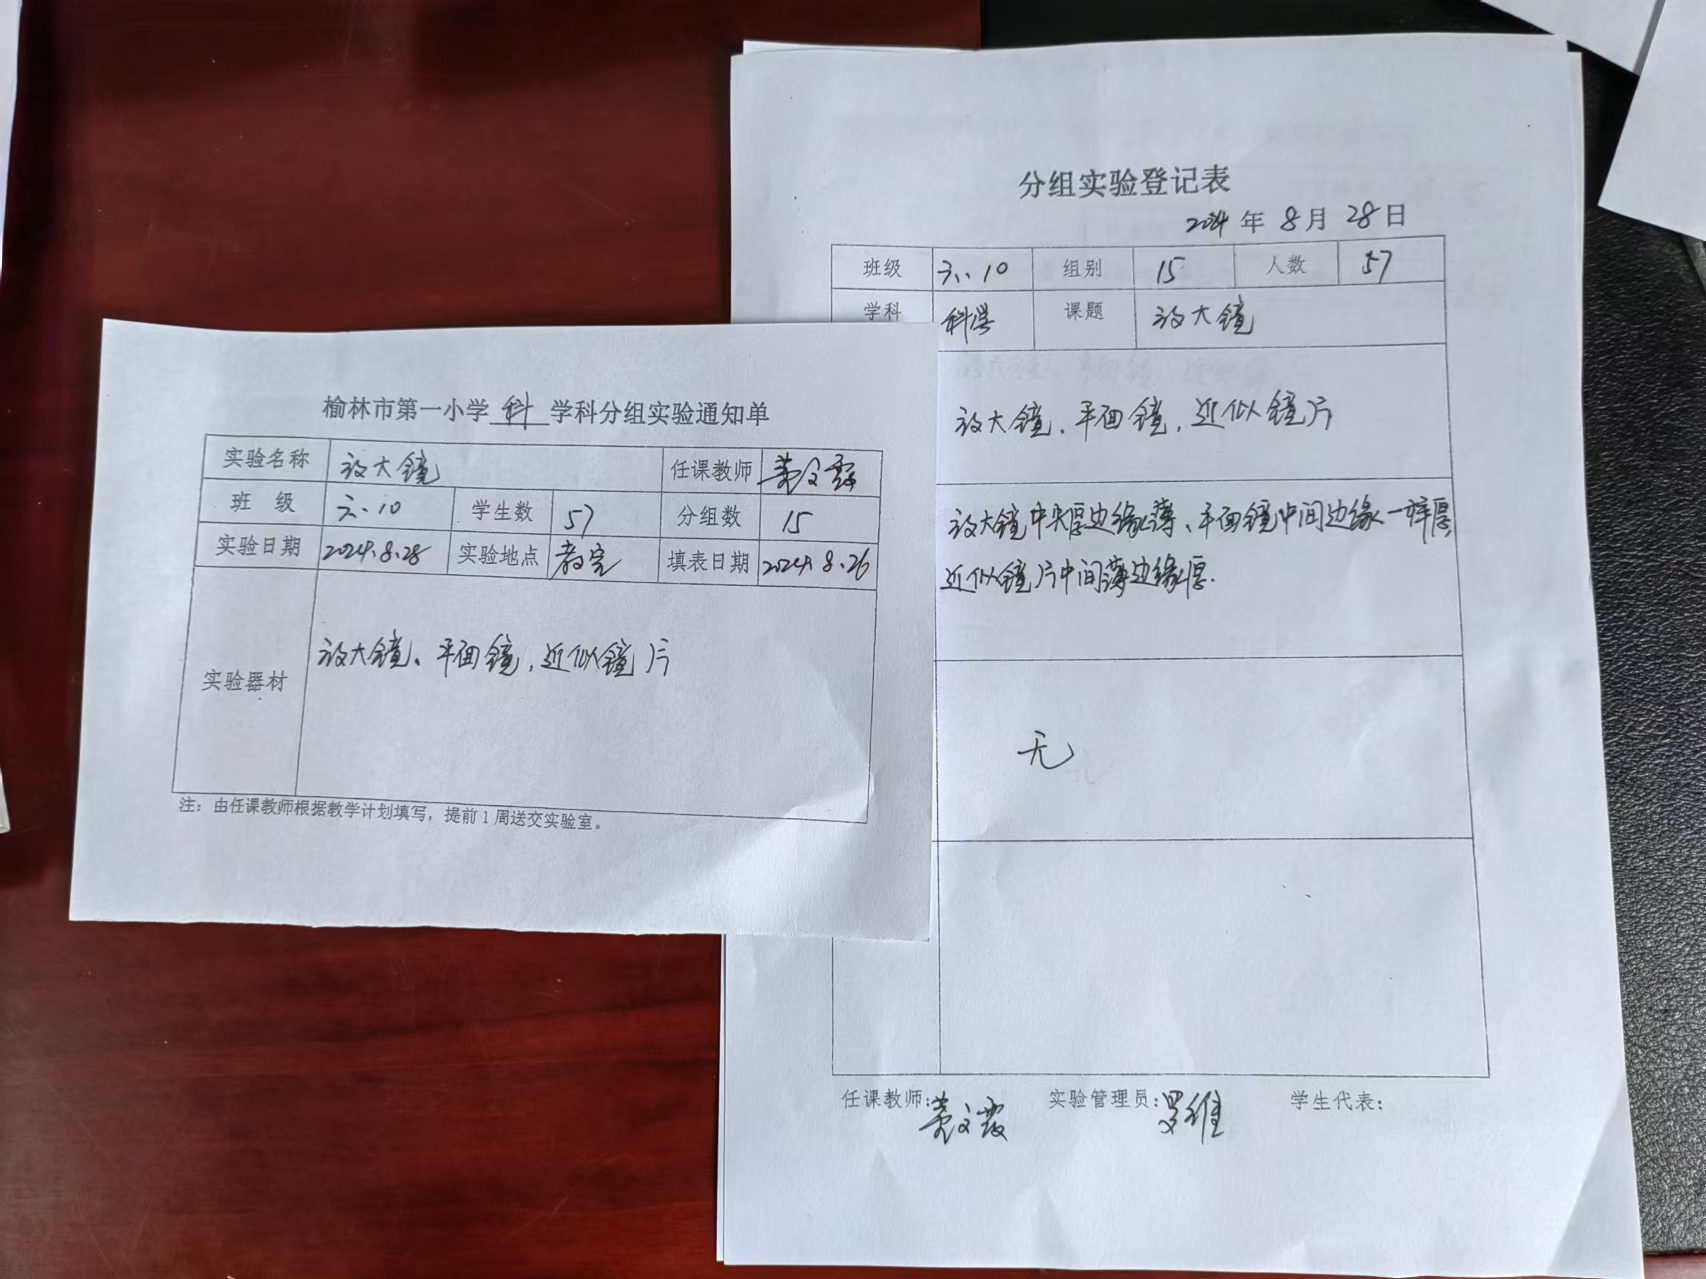 榆林市第一小学 科 学科分组实验通知单
实验名称 放大镜 任课教师
班 级 六.10 学生数 57 分组数 15
实验日期 2024.8.28 实验地点 教室 填表日期 2024.8.26
实验器材 放大镜、平面镜,近似镜片
注：由任课教师根据教学计划填写，提前1周送交实验室。
分组实验登记表
2024 年 8 月 28 日
班级 六.10 组别 15 人数 57
学科 科学 课题 放大镜
放大镜、平面镜,近似镜片
放大镜中央厚边缘薄、平面镜中间边缘一样厚
近似镜片中间薄边缘厚.
无
任课教师: 实验管理员:罗维 学生代表: